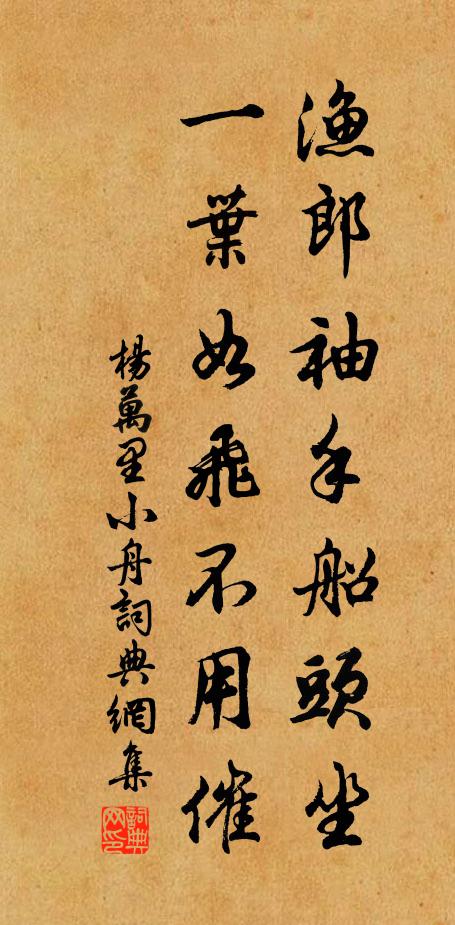 漁郎袖手船頭坐
一葉如飛不用催
楊萬里小舟詞典網集
詞典
网印